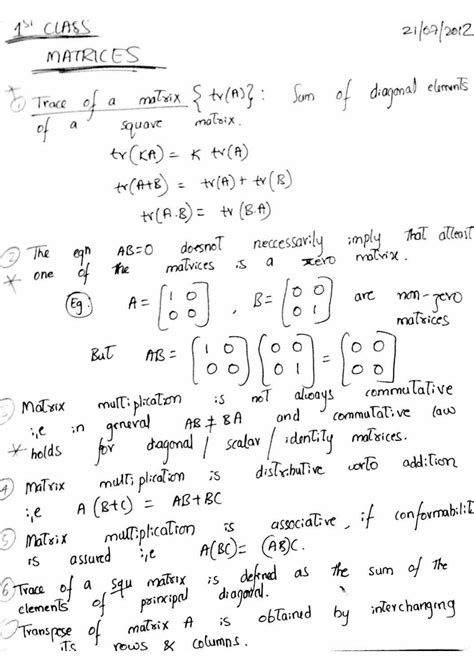 1st CLASS
21/07/2012
MATRICES
① Trace of a matrix {tr(A)} : Sum of diagonal elements
of a square matrix.
tr(KA) = K tr(A)
tr(A+B) = tr(A) + tr(B)
tr(A.B) = tr(B.A)
② The eqn AB=0 doesnot neccessarily imply that atleast
* one of the matrices is a zero matrix.
Eg: A = [1 0 0 0] , B = [0 0 0 1] are non-zero
matrices
But AB = [1 0 0 0] [0 0 0 1] = [0 0 0 0]
Matrix multiplication is not always commutative
i,e in general AB ≠ BA and commutative law
* holds for diagonal / scalar / identity matrices.
④ Matrix multiplication is distributive wrto addition
i,e A (B+C) = AB+BC
⑤ Matrix multiplication is associative, if conformabilit
is assured i,e A(BC) = (AB)C.
⑥ Trace of a squ matrix is defined as the sum of the
elements of principal diagonal.
Transpose of matrix A is obtained by interchanging
its rows & columns.